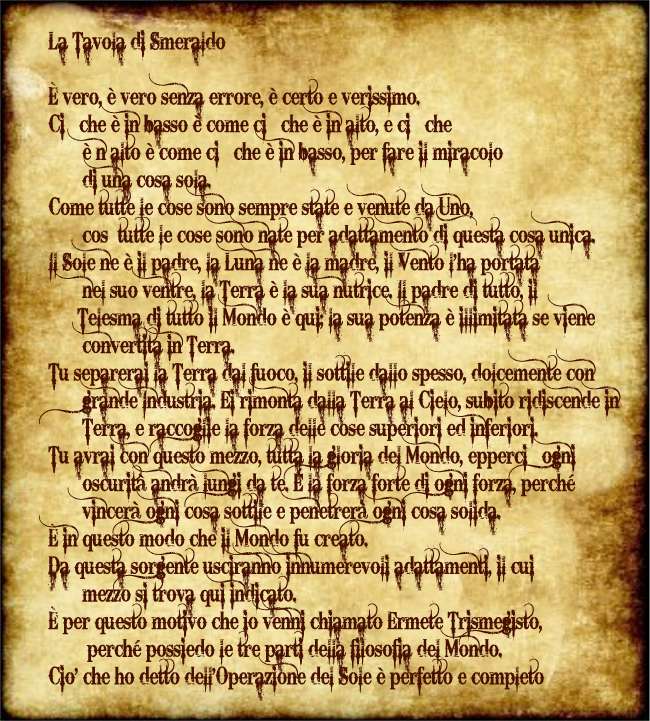 La Tavola di Smeraldo
È vero, è vero senza errore, è certo e verissimo.
Ci che è in basso è come ci che è in alto, e ci che
è n alto è come ci che è in basso, per fare il miracolo
di una cosa sola.
Come tutte le cose sono sempre state e venute da Uno,
cos tutte le cose sono nate per adattamento di questa cosa unica.
Il Sole ne è il padre, la Luna ne è la madre, il Vento l'ha portata
nel suo ventre, la Terra è la sua nutrice. Il padre di tutto, il
Telesma di tutto il Mondo è qui; la sua potenza è illimitata se viene
convertita in Terra.
Tu separerai la Terra dal fuoco, il sottile dallo spesso, dolcemente con
grande industria. Ei rimonta dalla Terra al Cielo, subito ridiscende in
Terra, e raccoglie la forza delle cose superiori ed inferiori.
Tu avrai con questo mezzo, tutta la gloria del Mondo, epperci ogni
oscurità andrà lungi da te. È la forza forte di ogni forza, perché
vincerà ogni cosa sottile e penetrerà ogni cosa solida.
È in questo modo che il Mondo fu creato.
Da questa sorgente usciranno innumerevoli adattamenti, il cui
mezzo si trova qui indicato.
È per questo motivo che io venni chiamato Ermete Trismegisto,
perché possiedo le tre parti della filosofia del Mondo.
Cio' che ho detto dell'Operazione del Sole è perfetto e completo